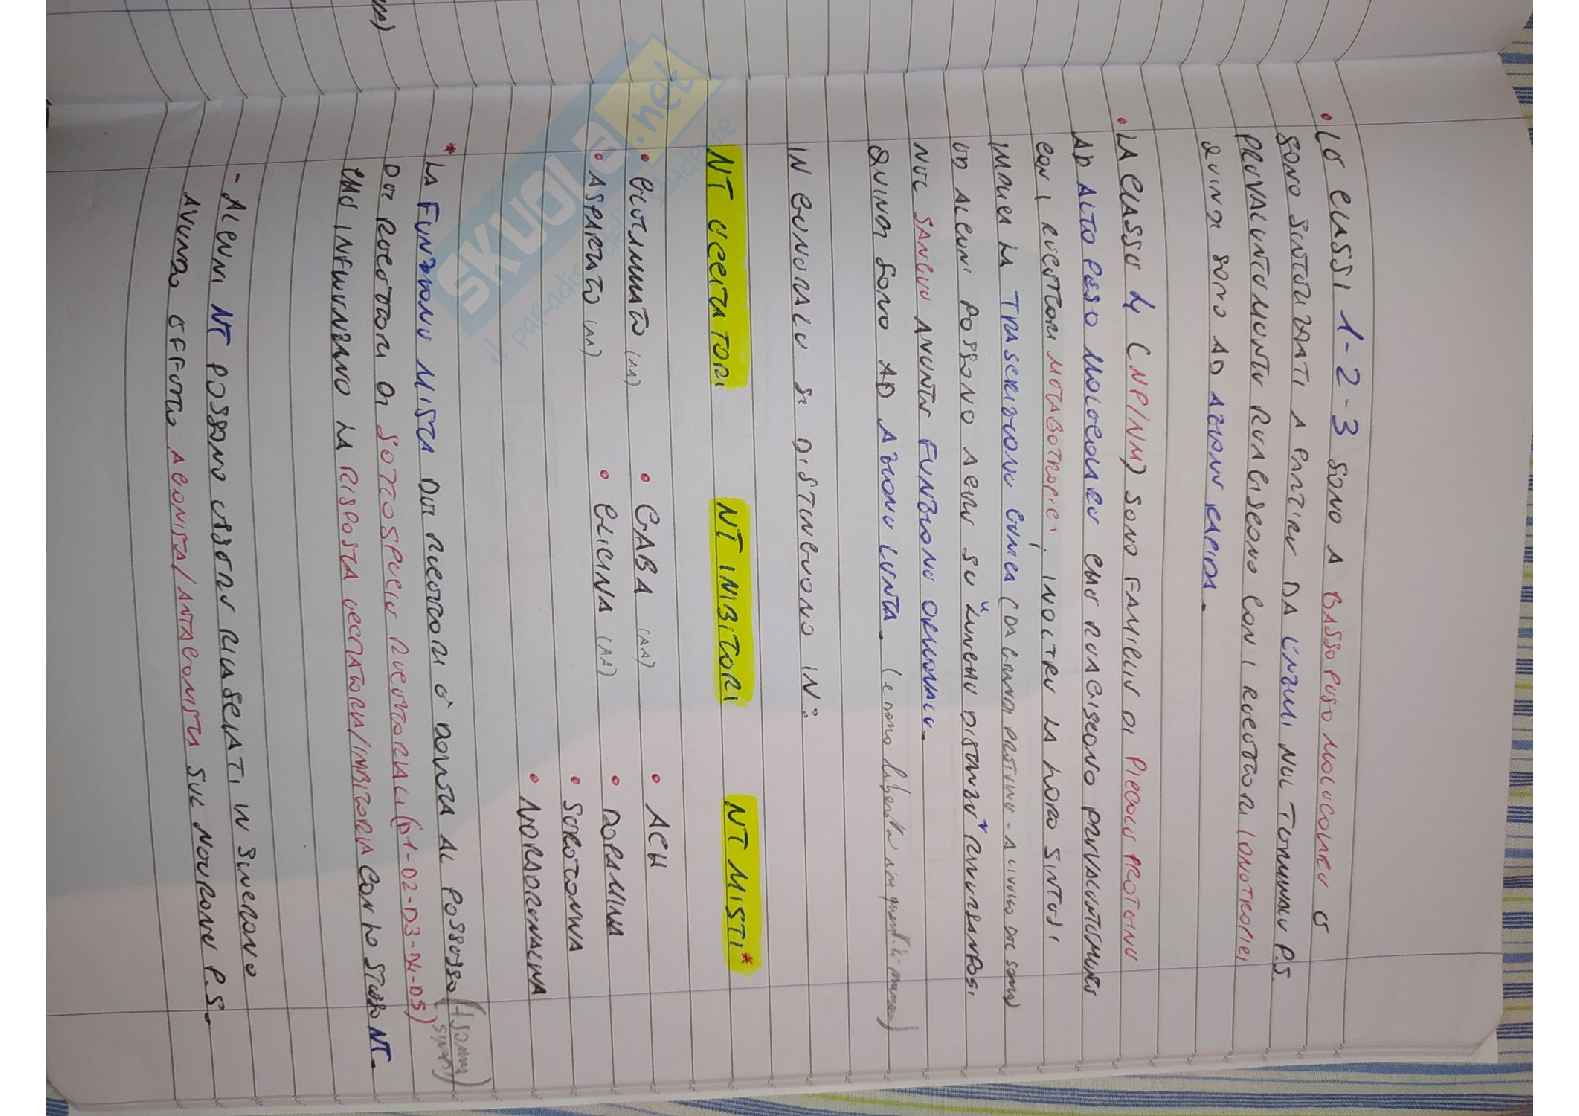 • LE CLASSI 1-2-3 SONO A BASSO PESO MOLECOLARE E
SONO SINTETIZZATI A PARTIRE DA ENZIMI NEL TERMINALE P.S.
PREVALENTEMENTE REAGISCONO CON I RECETTORI IONOTROPICI
QUINDI SONO AD AZIONE RAPIDA.
• LA CLASSE 4 (NP/NM) SONO FAMIGLIE DI PICCOLE PROTEINE
AD ALTO PESO MOLECOLARE CHE REAGISCONO PREVALENTEMENTE
CON I RECETTORI METABOTROPICI. INOLTRE LA LORO SINTESI
IMPLICA LA TRASCRIZIONE GENICA (DA GRANDI PROTEINE - A LIVELLO DEL SOMA)
ED ALCUNI POSSONO AGIRE SU "LUNGHE DISTANZE" RIVERSANDOSI
NEL SANGUE AVENTE FUNZIONE ORMONALE.
QUINDI SONO AD AZIONE LENTA. (e sono liberate in quantità minore)
IN GENERALE SI DISTINGUONO IN:
NT ECCITATORI NT INIBITORI NT MISTI*
• GLUTAMMATO (AA) • GABA (AA) • ACH
• ASPARTATO (AA) • GLICINA (AA) • DOPAMINA
• SEROTONINA
• NORADRENALINA
* LA FUNZIONE MISTA DEI RECETTORI È DOVUTA AL POSSESSO
DEI RECETTORI DI SOTTOSPECIE RECETTORIALI (D1-D2-D3-D4-D5)
CHE INFLUENZANO LA RISPOSTA ECCITATORIA/INIBITORIA CON LO STESSO NT.
- ALCUNI NT POSSONO ESSERE RILASCIATI IN SINCRONO
AVENDO EFFETTO AGONISTA/ANTAGONISTA SUL NEURONE P.S.
SKUOLA.net